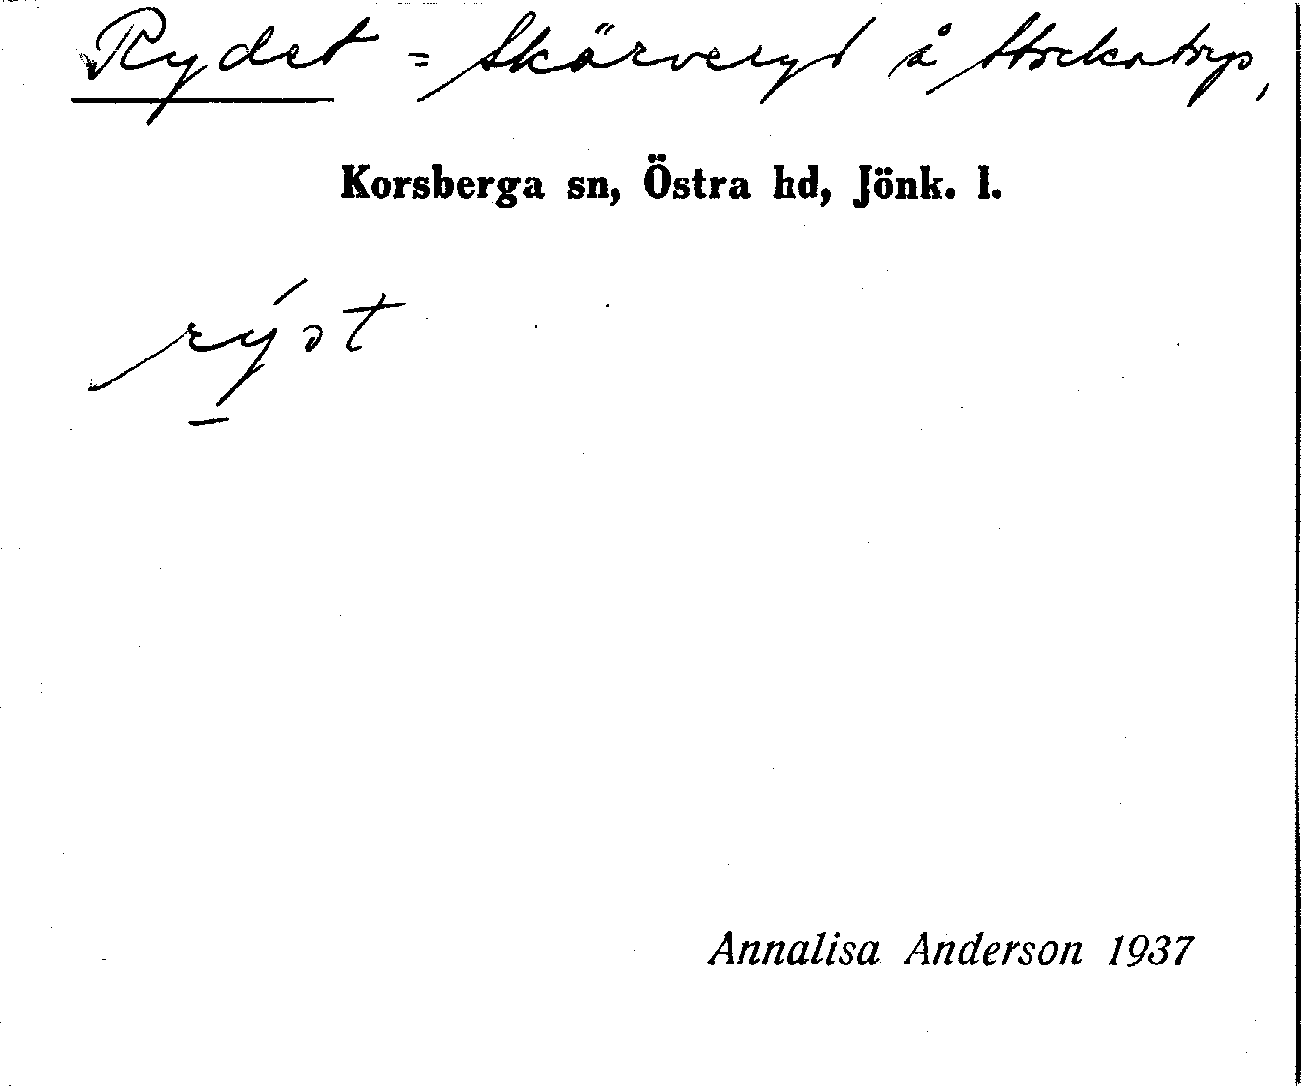 Rydet = Skärveryd å Stockatorp,
Korsberga sn, Östra hd, Jönk. l.
rýət
Annalisa Anderson 1937